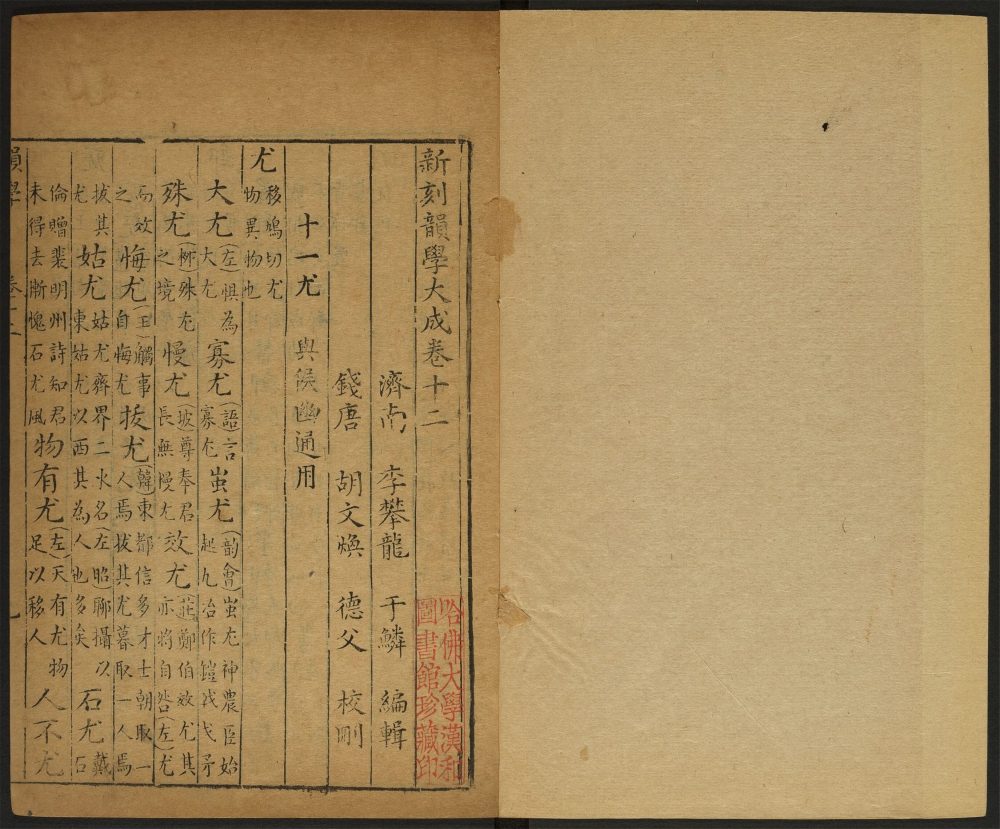 新刻韻學大成卷十二
濟南 李攀龍 于鱗 編輯
錢唐 胡文煥 德父 校刪
十一尤 與侯幽通用
尤 移鳩切尤物異物也
大尤 (左)惧為大尤 寡尤 (語)言寡尤 蚩尤 (韻會)蚩尤神農臣始起九冶作鎧戟戈矛
殊尤 (柳)殊尤之境 慢尤 (坡)尊奉君長無慢尤 效尤 (左)鄭伯效尤其亦將自咎(左)尤
而效之 悔尤 (王)觸事自悔尤 拔尤 (韓)東都信多才士朝取一人焉拔其尤暮取一人焉
拔其尤 姑尤 姑尤齊界二水名(左昭)聊攝以東姑尤以西其為人也多矣 石尤 戴
倫贈裴明州詩知君未得去漸愧石尤風 物有尤 (左)天有尤物足以移人 人不尤
哈佛大學漢和
圖書館珍藏印